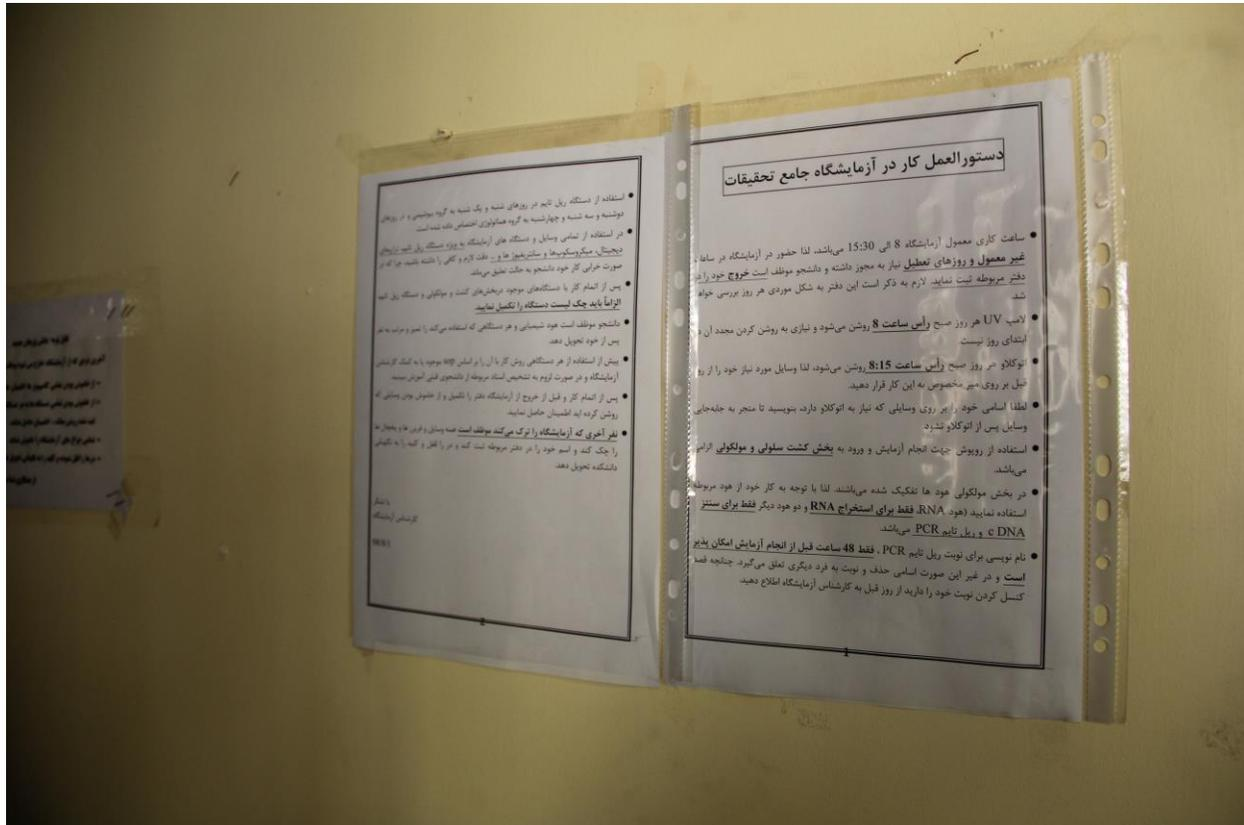 دستورالعمل کار در آزمایشگاه جامع تحقیقات
● ساعت کاری معمول آزمایشگاه 8 الی 15:30 می‌باشد، لذا حضور در آزمایشگاه در ساعا
غیر معمول و روزهای تعطیل نیاز به مجوز داشته و دانشجو موظف است خروج خود را در
دفتر مربوطه ثبت نماید. لازم به ذکر است این دفتر به شکل موردی هر روز بررسی خواهد
شد.
● لامپ UV هر روز صبح رأس ساعت 8 روشن می‌شود و نیازی به روشن کردن مجدد آن در
ابتدای روز نیست.
● اتوکلاو هر روز صبح رأس ساعت 8:15 روشن می‌شود، لذا وسایل مورد نیاز خود را از روز
قبل بر روی میز مخصوص به این کار قرار دهید.
● لطفا اسامی خود را بر روی وسایلی که نیاز به اتوکلاو دارد، بنویسید تا منجر به جابه‌جایی
وسایل پس از اتوکلاو نشود.
● استفاده از روپوش جهت انجام آزمایش و ورود به بخش کشت سلولی و مولکولی الزامی
می‌باشد.
● در بخش مولکولی هود ها تفکیک شده می‌باشند. لذا با توجه به کار خود از هود مربوطه
استفاده نمایید (هود RNA، فقط برای استخراج RNA و دو هود دیگر فقط برای سنتز
c DNA و ریل تایم PCR می‌باشد.
● نام نویسی برای نوبت ریل تایم PCR ، فقط 48 ساعت قبل از انجام آزمایش امکان پذیر
است و در غیر این صورت اسامی حذف و نوبت به فرد دیگری تعلق می‌گیرد. چنانچه قصد
کنسل کردن نوبت خود را دارید از روز قبل به کارشناس آزمایشگاه اطلاع دهید.
1
● استفاده از دستگاه ریل تایم در روزهای شنبه و یک شنبه به گروه بیوشیمی و در روزهای
دوشنبه و سه شنبه و چهارشنبه به گروه هماتولوژی اختصاص داده شده است.
● در استفاده از تمامی وسایل و دستگاه های آزمایشگاه به ویژه دستگاه ریل تایم، ترازوهای
دیجیتال، میکروسکوپ‌ها و سانتریفیوژ ها و .. دقت لازم و کافی را داشته باشید، چرا که در
صورت خرابی کار خود دانشجو به حالت تعلیق می‌ماند.
● پس از اتمام کار با دستگاههای موجود دربخش‌های کشت و مولکولی و دستگاه ریل تایم
الزاماً باید چک لیست دستگاه را تکمیل نمایید.
● دانشجو موظف است هود شیمیایی و هر دستگاهی که استفاده می‌کند را تمیز و مرتب به نفر
پس از خود تحویل دهد.
● پیش از استفاده از هر دستگاهی روش کار با آن را بر اساس sop موجود یا به کمک کارشناس
آزمایشگاه و در صورت لزوم به تشخیص استاد مربوطه از دانشجوی قبلی آموزش ببینید.
● پس از اتمام کار و قبل از خروج از آزمایشگاه دفتر را تکمیل و از خاموش بودن وسایلی که
روشن کرده اید اطمینان حاصل نمایید.
● نفر آخری که آزمایشگاه را ترک می‌کند موظف است همه وسایل و فریزر ها و یخچال ها
را چک کند و اسم خود را در دفتر مربوطه ثبت کند و در را قفل و کلید را به نگهبانی
دانشکده تحویل دهد.
با تشکر
کارشناس آزمایشگاه
2